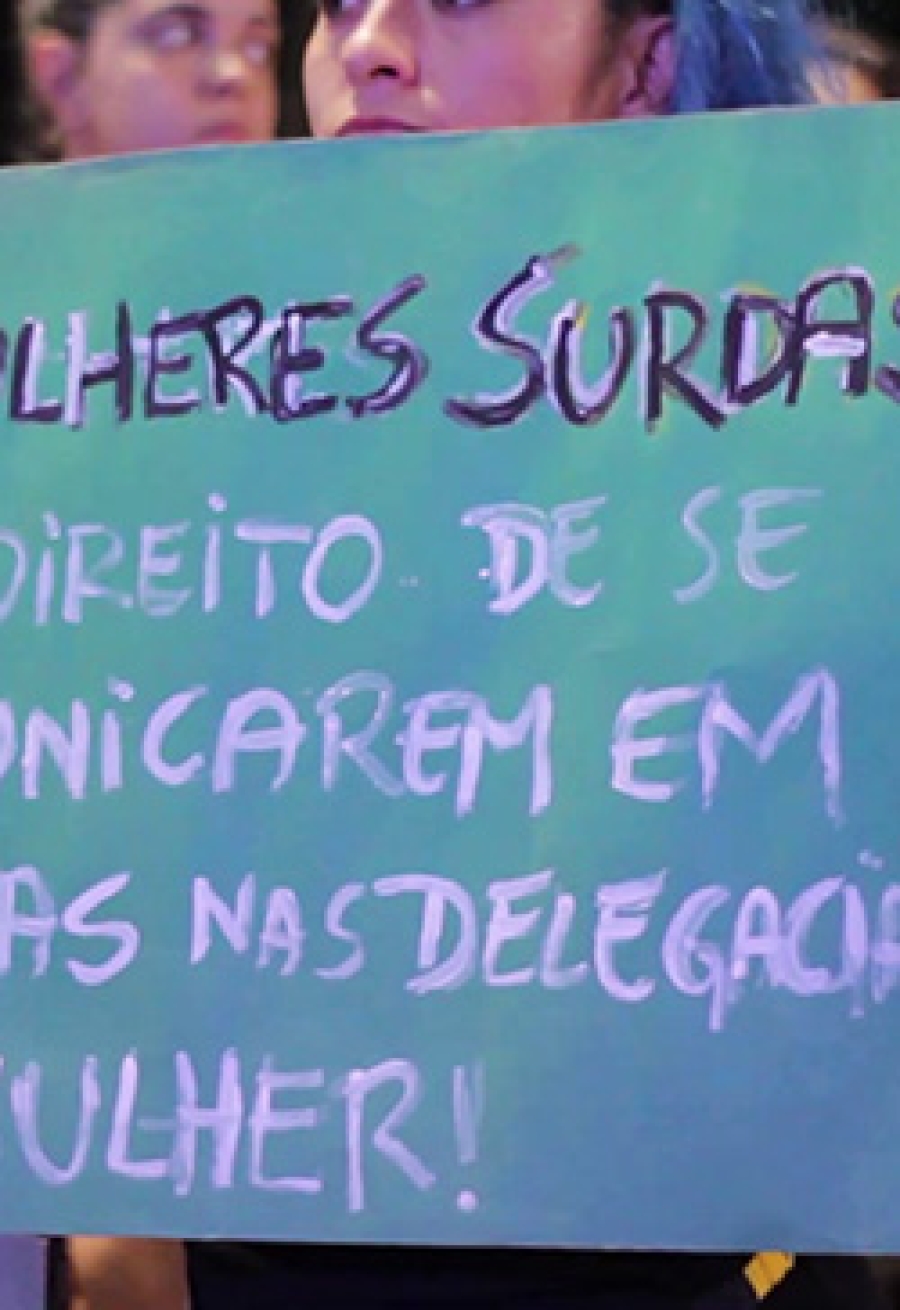 ULHERES SURDAS
DIREITO DE SE
UNICAREM EM
AS NAS DELEGACIA
MULHER!